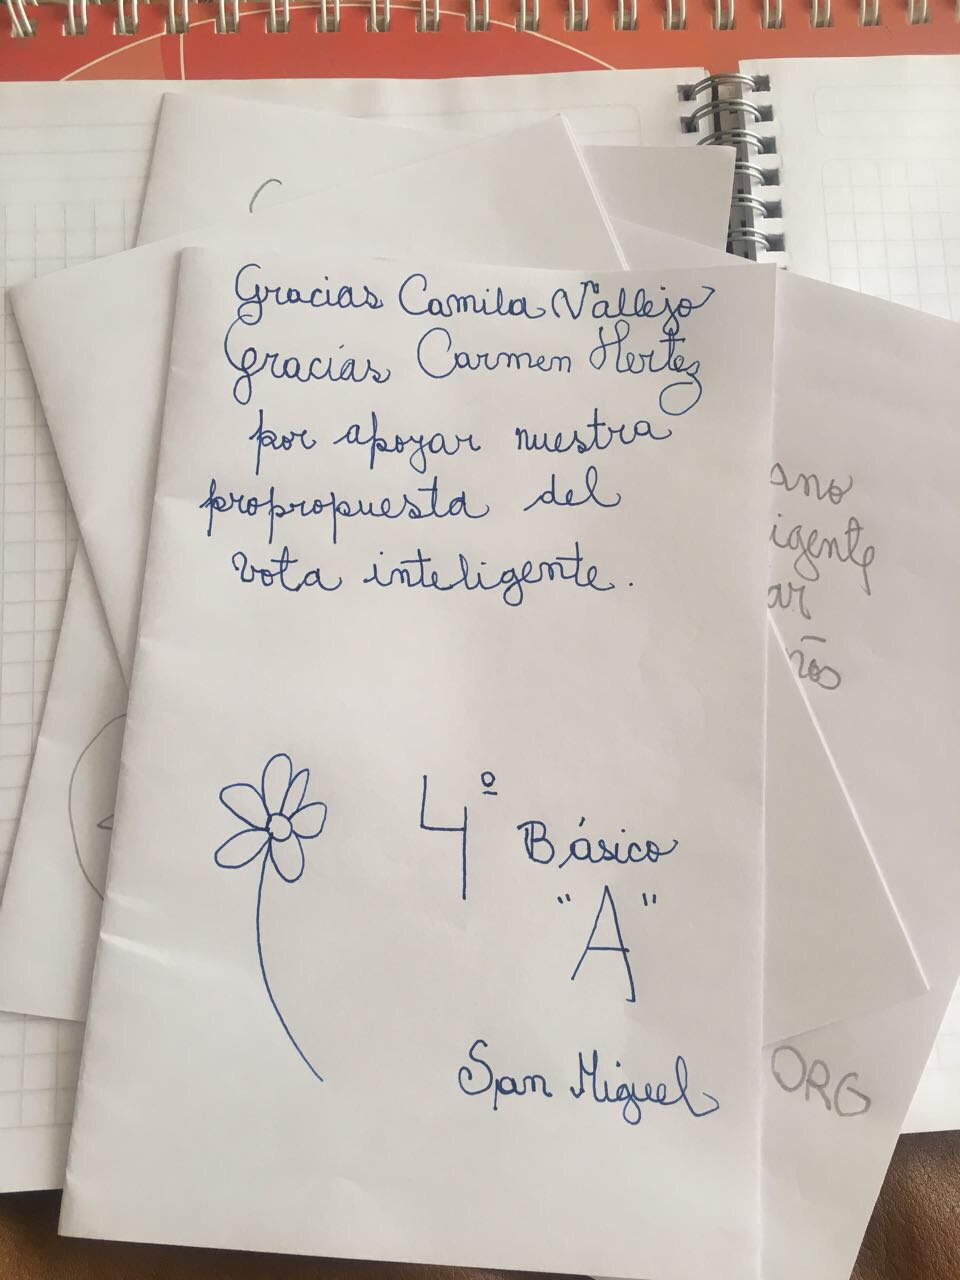 Gracias Camila Vallejo
Gracias Carmen Hertez
por apoyar nuestra
propropuesta del
vota inteligente.
4º
Básico
"A"
San Miguel
ano
igente
ar
ños
ORG